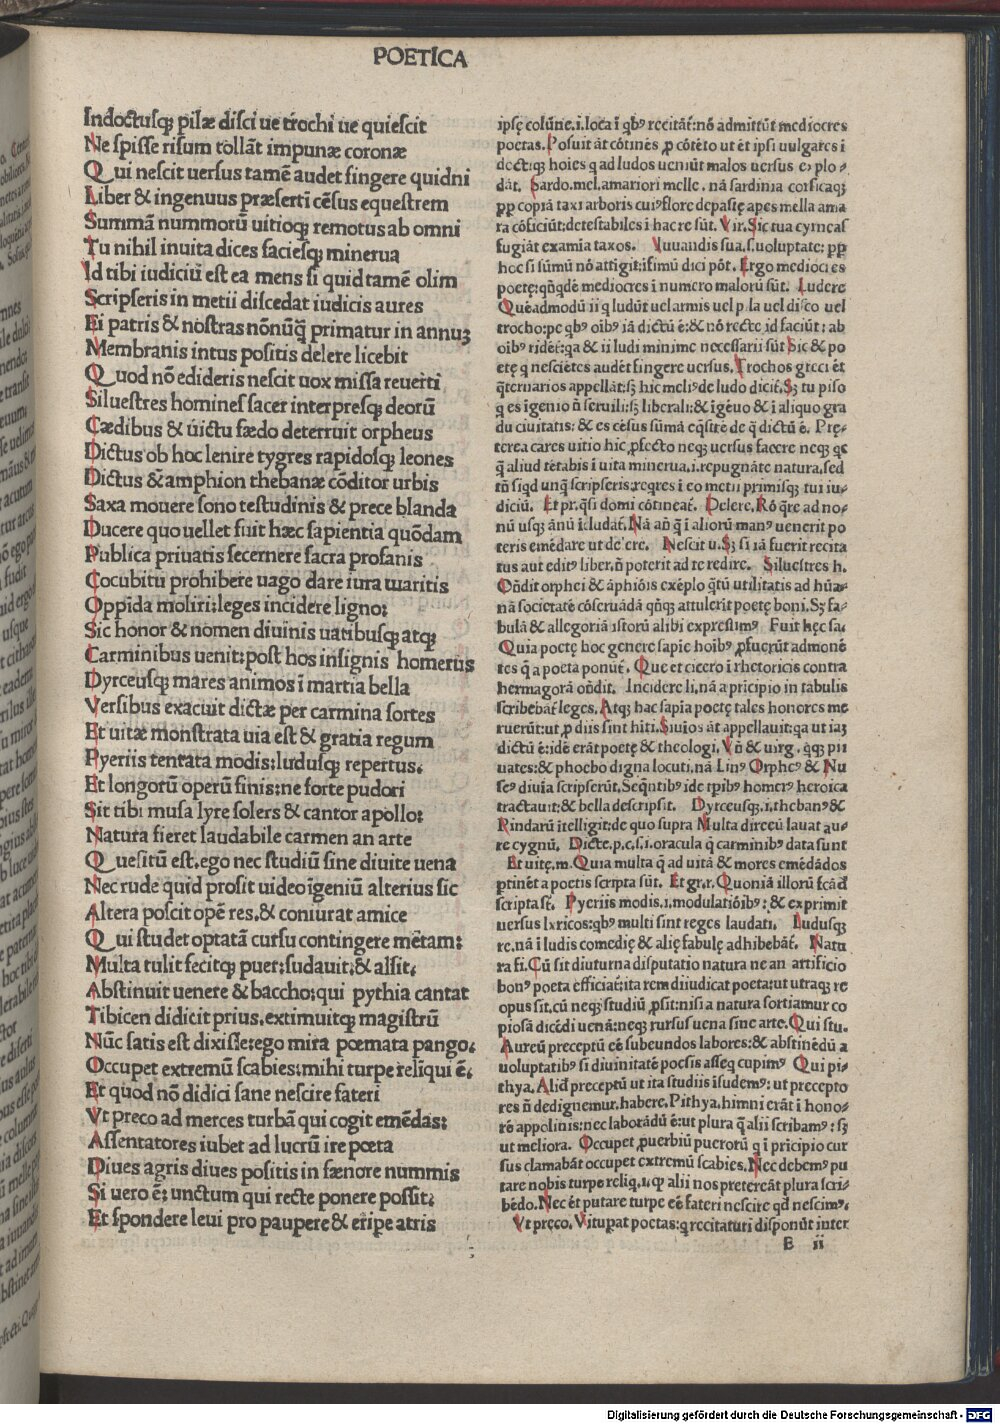 POETICA
Indoctusq; pilæ disci ue trochi ue quiescit
Ne spisse risum tollāt impunæ coronæ
Qui nescit uersus tamē audet fingere quidni
Liber & ingenuus præserti cēsus equestrem
Summā nummorū uitioq; remotus ab omni
Tu nihil inuita dices faciesq; minerua
Id tibi iudiciū est ea mens si quid tamē olim
Scripseris in metii discedat iudicis aures
Ei patris & nostras nōnūq̄ primatur in annuȝ
Membranis intus positis delere licebit
Quod nō edideris nescit uox missa reuerti
Siluestres homines sacer interpresq; deorū
Cædibus & uictu fædo deterruit orpheus
Dictus ob hoc lenire tygres rapidosq; leones
Dictus & amphion thebanæ cōditor urbis
Saxa mouere sono testudinis & prece blanda
Ducere quo uellet fuit hæc sapientia quōdam
Publica priuatis secernere sacra profanis
Cōcubitu prohibere uago dare iura maritis
Oppida moliri:leges incidere ligno:
Sic honor & nomen diuinis uatibusq; atq;
Carminibus uenit:post hos insignis homerus
Dyrceusq; mares animos i martia bella
Versibus exacuit dictæ per carmina sortes
Et uitæ monstrata uia est & gratia regum
Pyeriis tentata modis:ludusq; repertus.
Et longorū operū finis:ne forte pudori
Sit tibi musa lyre solers & cantor apollo:
Natura fieret laudabile carmen an arte
Quesitū est.ego nec studiū sine diuite uena
Nec rude quid prosit uideo īgeniū alterius sic
Altera poscit opē res.& coniurat amice
Qui studet optatā cursu contingere mētam:
Multa tulit fecitq; puer:sudauit:& alsit.
Abstinuit uenere & baccho:qui pythia cantat
Tibicen didicit prius.extimuitq; magistrū
Nūc satis est dixisse:ego mira poemata pango.
Occupet extremū scabies:mihi turpe relīqui ē.
Et quod nō didici sane nescire fateri
Vt preco ad merces turbā qui cogit emēdas:
Assentatores iubet ad lucrū ire poeta
Diues agris diues positis in fænore nummis
Si uero ē: unctum qui recte ponere possit.
Et spondere leui pro paupere & eripe atris
ipsę colūne.i.loca ī qbꝰ recitāt:nō admittūt mediocres
poetas. Posuit āt cōtinēs ꝓ cōtēto ut ēt ipsi uulgares ī
decti:q; hoies q ad ludos ueniūt malos uersus explo-
dāt. Sardo.mel.amariori melle. nā sardinia corsicaq;
ꝓp copiā taxi arboris cuiꝰ flore depastę apes mella ama
ra cōficiūt:detestabiles ī hac re sūt. Vir.Sic tua cyrneas
fugiāt examia taxos. Iuuandis sua.s.uoluptate: ꝓp
hoc si sūmū nō attīgit:īfimū dici pōt. Ergo mediocres
poetę:qñqdē mediocres ī numero malorū sūt. Ludere
Quēadmodū ii q ludūt uel armis uel pila uel disco uel
trocho:pe qbꝰ oibꝰ iā dictū ē:& nō recte id faciūt: ab
oibꝰ ridēt:qa & ii ludi minime necessarii sūt Sic & po
etę q nesciētes audēt fingere uersus. Trochos greci ēt
q̄ternarios appellāt:sȝ hic meliꝰ de ludo dicit. Sȝ tu piso
q es īgenio ñ seruili:sȝ liberali:& īgēuo & ī aliquo gra
du ciuitatis: & es cēsus sūmā eq̄sitē de q dictū ē. Prę-
terea cares uitio hic ꝓfecto neq; uersus facere neq; qc
q̄ aliud tētabis ī uita minerua.i.repugnāte natura.sed
tñ siqd unq̄ scripseris:reqres ī eo metii primisq; tui iu-
diciū. Et pr.q̄si domi cōtineat. Delere. Rō q̄re ad no-
nū usq; ānū īcludat. Nā añ q̄ ī aliorū manꝰ uenerit po
teris emēdare ut delere. Nescit u. Sȝ si iā fuerit recita
tus aut editꝰ liber.ñ poterit ad te redire. Siluestres h.
Oñdit orphei & āphiōis exēplo q̄tū utilitatis ad hūa-
nā societatē cōseruādā qñq; attulerīt poetę boni. Sȝ fa-
bulā & allegoriā istorū alibi expressimꝰ Fuit hęc sa.
Quia poetę hoc genere sapiē hoibꝰ ꝓfuerūt admonē
tes q̄ a poeta ponūt. Que et cicero ī rhetoricis contra
hermagorā oñdit. Incidere li. nā a pricipio in tabulis
scribebāt leges. Atq; hac sapia poetę tales honores me
ruerūt:ut ꝓ diis sint hiti. Diuios āt appellauit:qa ut iaȝ
dictū ē:idē erāt poetę & theologi. Vñ & uirg. q̄q; pii
uates:& phoebo digna locuti. nā Linꝰ Orpheꝰ & Mu
seꝰ diuīa scripserūt. Seqntibꝰ ide tpibꝰ homerꝰ heroica
tractauit:& bella descripsit. Dyrceusq;.i.thebanꝰ &
Pindarū ītelligit:de quo supra Multa dirceū lauat au-
re cygnū. Dictę.p.c.s.i.oracula q̄ carminibꝰ data sunt
Et uitę.m. Quia multa q̄ ad uitā & mores emēdādos
ptinēt a poetis scripta sūt. Et gr.r. Quoniā illorū fcā ꝺ
scripta st̄. Pyeriis modis.i.modulatiōibꝰ: & exprimit
uersus lyricos:qbꝰ multi sint reges laudati. Ludusq;
re.nā ī ludis comedię & alię fabulę adhibebāt. Natu
ra fi. Cū sit diuturna disputatio natura ne an artificio
bonꝰ poeta efficiat:ita rem diiudicat poeta:ut utraq; re
opus sit.cū neq; studiū ꝓsit:nisi a natura sortiamur co
piosā dicēdi uenā:neq; rursus uena sine arte. Qui stu.
Aureū preceptū eē subeundos labores:& abstinēdū a
uoluptatibꝰ si diuinitatē poesis asseq cupimꝰ Qui pi-
thya. Alid preceptū ut ita studiis īsudemꝰ: ut precepto
res ñ dedignemur.habere. Pithya.himni erāt ī hono-
rē appolinis:nec laborādū ē:ut plura q̄ alii scribamꝰ: sȝ
ut meliora. Occupet ꝓuerbiū puerorū q ī pricipio cur
sus clamabāt occupet extremū scabies. Nec debemꝰ pu
tare nobis turpe reliq.i.q; alii nos pretereāt plura scri-
bēdo. Nec ēt putare turpe eē fateri nescire qd nescimꝰ.
Vt pręco. Vitupat poetas:q recitaturi disponūt inter
B ii
Digitalisierung gefördert durch die Deutsche Forschungsgemeinschaft - DFG